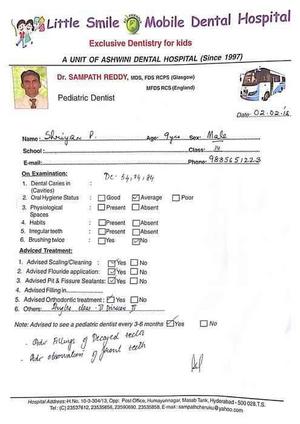 Little Smile Mobile Dental Hospital
Exclusive Dentistry for kids
A UNIT OF ASHWINI DENTAL HOSPITAL (Since 1997)
Dr. SAMPATH REDDY, MDS, FDS RCPS (Glasgow)
MFDS RCS (England)
Pediatric Dentist
Date: 02.02.16
Name: Shriyan P. Age: 9yrs Sex: Male
School: Class: IV
E-mail: Phone: 9885651223
On Examination: Dc - 54, 74, 84
1. Dental Caries in (Cavities) :
2. Oral Hygiene Status : Good Average Poor
3. Physiological Spaces : Present Absent
4. Habits : Present Absent
5. Irregular teeth : Present Absent
6. Brushing twice : Yes No
Adviced Treatment:
1. Advised Scaling/Cleaning : Yes No
2. Advised Flouride application: Yes No
3. Advised Pit & Fissure Sealants: Yes No
4. Advised Filling in
5. Advised Orthodontic treatment: Yes No
6. Others: Angles class - II Division II
Note: Advised to see a pediatric dentist every 3-6 months Yes No
- Adv Fillings of Decayed teeth
- Adv observation of front teeth
Hospital Address: H.No. 10-3-304/13, Opp. Post Office, Humayunnagar, Masab Tank, Hyderabad - 500 028.T.S.
Tel: (C) 23537612, 23535656, 23590690, 23535858, E-mail: sampathchenulu@yahoo.com